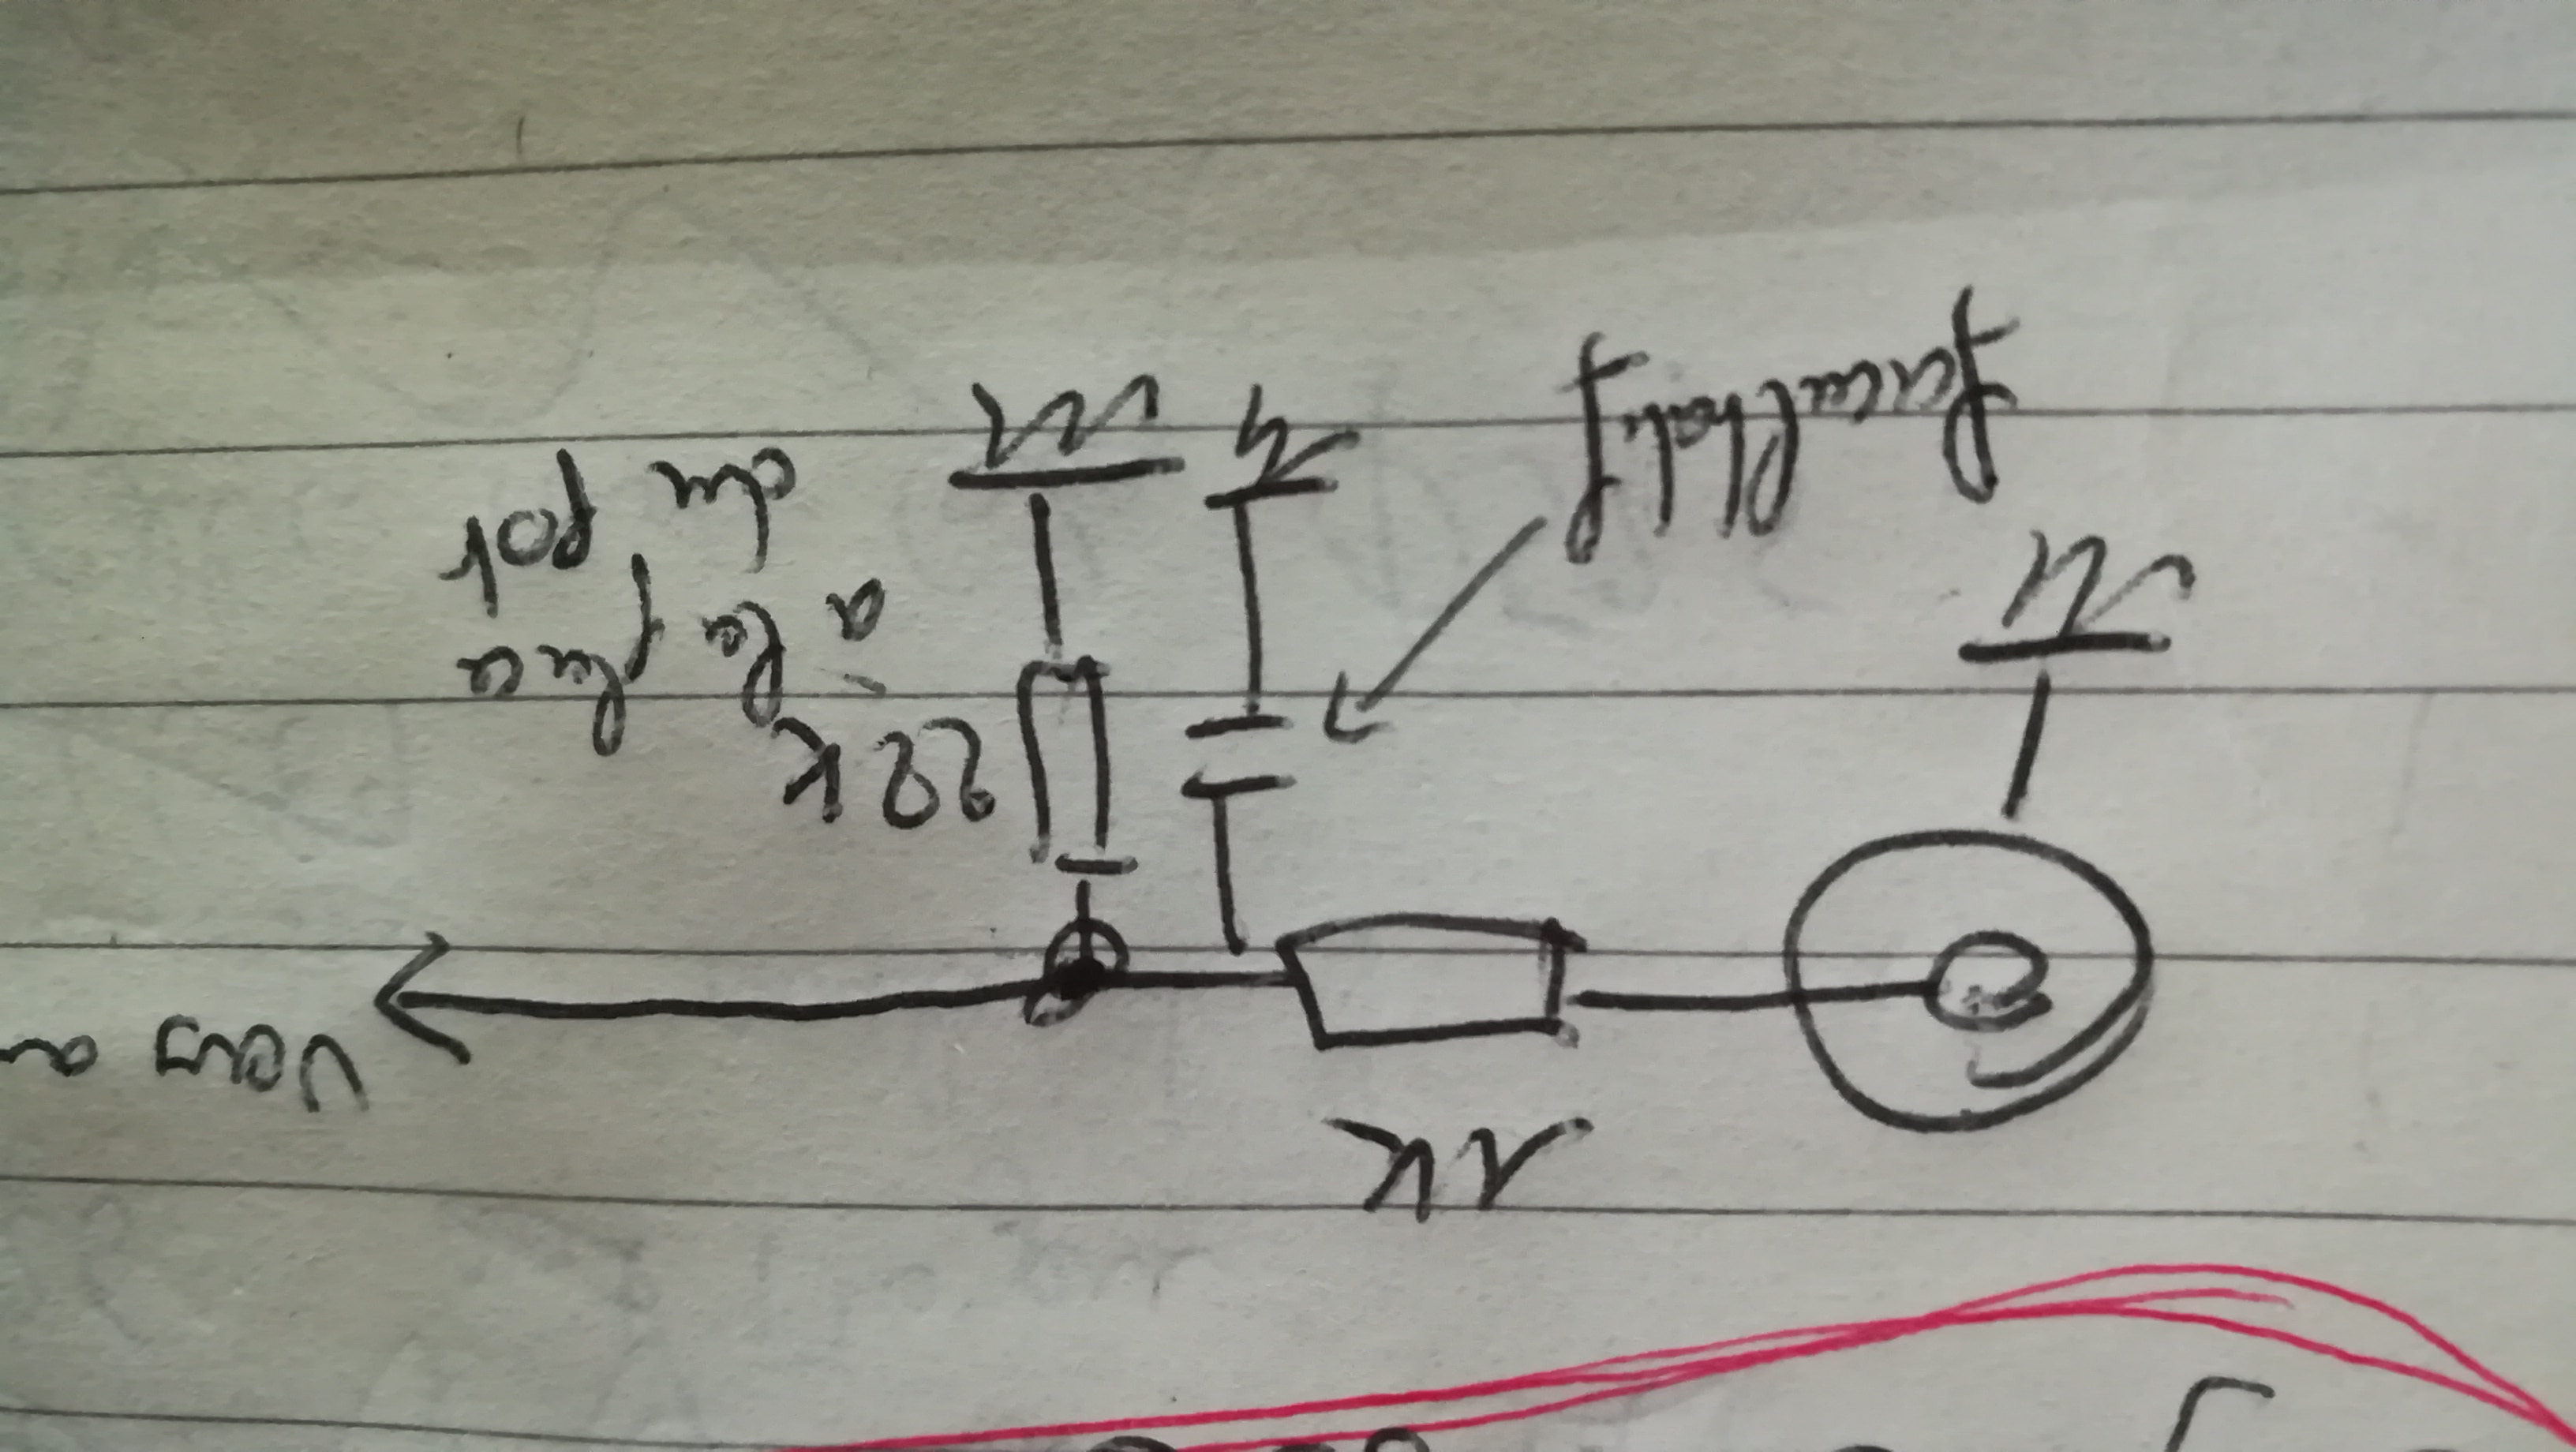 1K
Vers
22K
à la place
du pot
facultatif